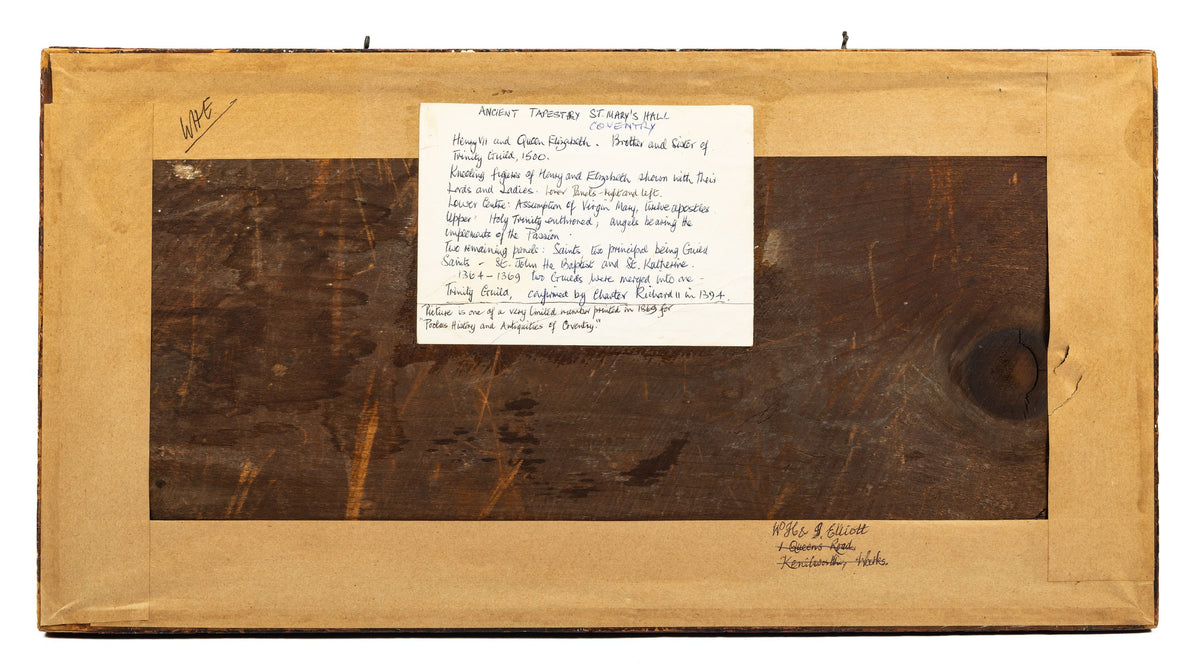 WHE
ANCIENT TAPESTRY ST. MARY'S HALL
COVENTRY
Henry VII and Queen Elizabeth. Brother and Sister of
Trinity Guild, 1500.
Kneeling figures of Henry and Elizabeth shown with their
Lords and Ladies. Lower Panels - right and left.
Lower Centre: Assumption of Virgin Mary, twelve apostles.
Upper: Holy Trinity enthroned; angels bearing the
implements of the Passion.
Two remaining panels: Saints two principal being Guild
Saints - St. John the Baptist and St. Katherine.
1364-1369 Two Guilds were merged into one -
Trinity Guild, confirmed by Charter Richard II in 1394.
Picture is one of a very limited number printed in 1869 for
"Pooles History and Antiquities of Coventry."
W H & J. Elliott
1 Queens Road,
Kenilworth, Warks.